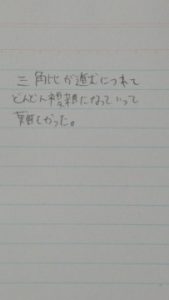 三角比が進むにつれて
どんどん複雑になっていって
難しかった。